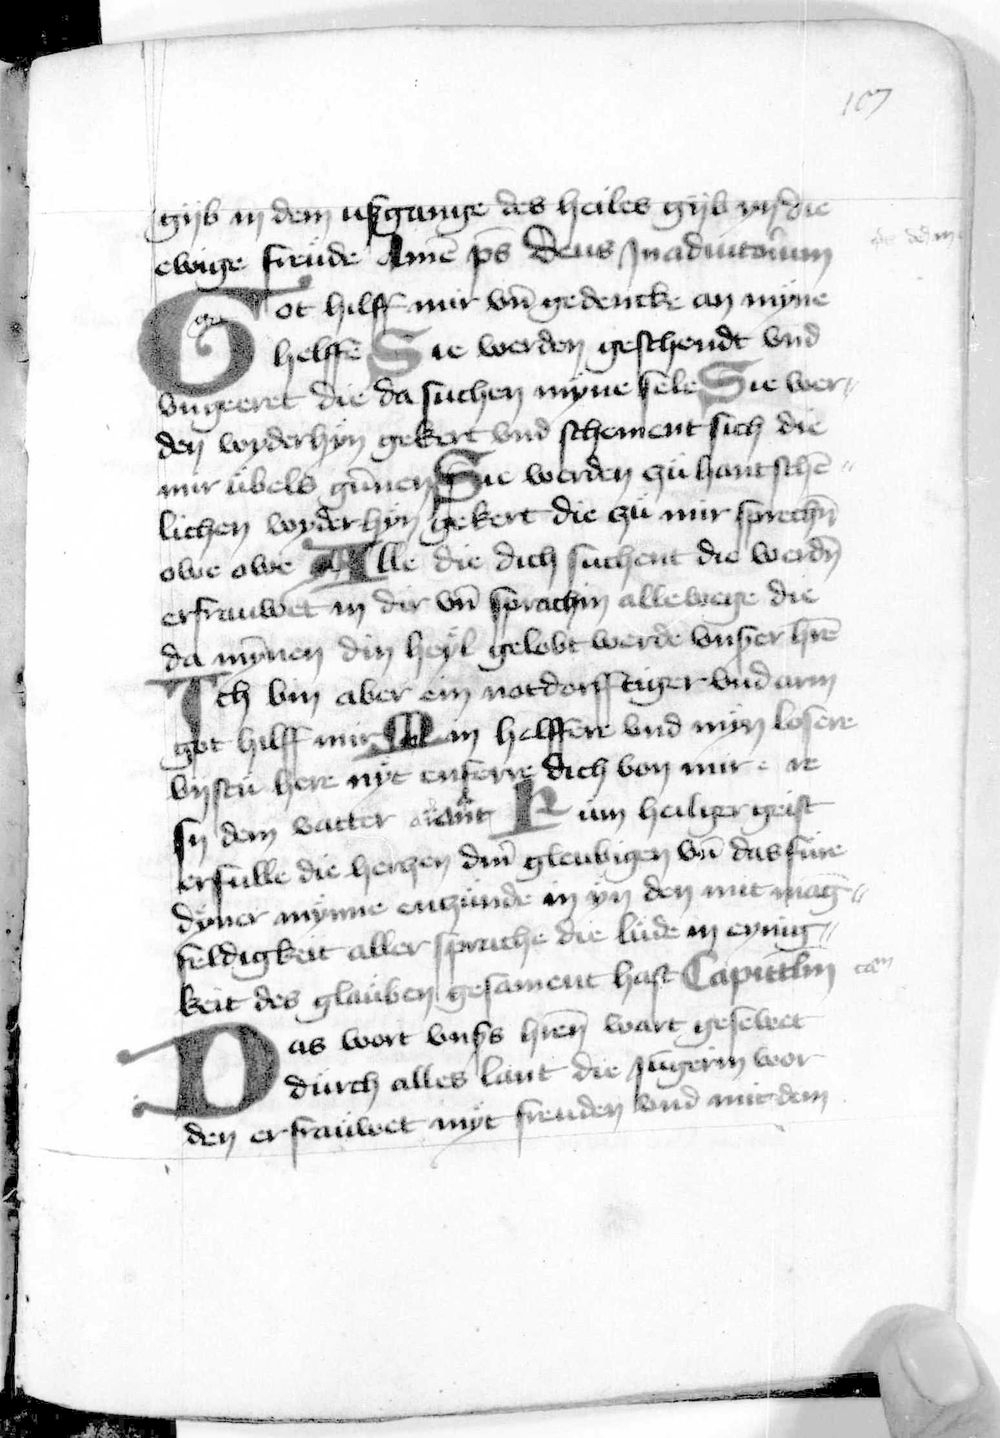 107
gijb in dem uſzgange des heiles gijb yn die
ewige freüde Amē ps̄ Deus Jn adiutorium
Got hilff mir vn̄ gedencke an myne
helffe Sie werden geschendt vnd
vngeeret die da suchen myne sele Sie wer〃
den wyderhÿn gekert vnd schement sich die
mir übels gūnen Sie werden zü hant schē〃
lichen wyderhÿn gekert die zü mir sprechn̄
owe owe Alle die dich suchent die werdn̄
erfrauwet in dir vn̄ sprachin allewege die
da mÿnnen din heÿl gelobt werde vnßer hrē
Ich bin aber ein notdorfftiger vnd arm
got hilff mir Min helffere vnd mÿn losere
bystu here nÿt enferre dich von mir · re
sy dem vatter Kum heiliger geist
erfulle die herczen dinr̄ gleubigen vn̄ das füre
dÿner mÿnne enczünde in ÿn den mit maḡ〃
feldigkeit aller sprache die lüde in eynig〃
keit des glaüben gesament hast Capittlm̄ cam
Das wort vnßs hren̄ wart gesewet
dürch alles lant die Jungerin wor
den erfraüwet mÿt freuden vnd mit dem